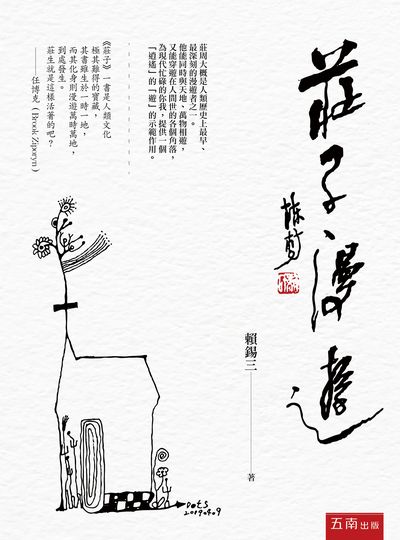 莊子漫遊
賴錫三——著
莊周大概是人類歷史上最早、
最深刻的漫遊者之一。
他能同時與天地、萬物相遊，
又能穿遊在人間世的各個角落，
為現代忙碌的你我，提供一個
「逍遙」的「遊」的示範作用。
《莊子》一書是人類文化
極其難得的寶藏，
其書雖生於一時一地，
而其化身則漫遊萬時萬地，
到處發生。
莊生就是這樣活著的吧？
——任博克（Brook Ziporyn）
Pots
2019.4.9
五南出版